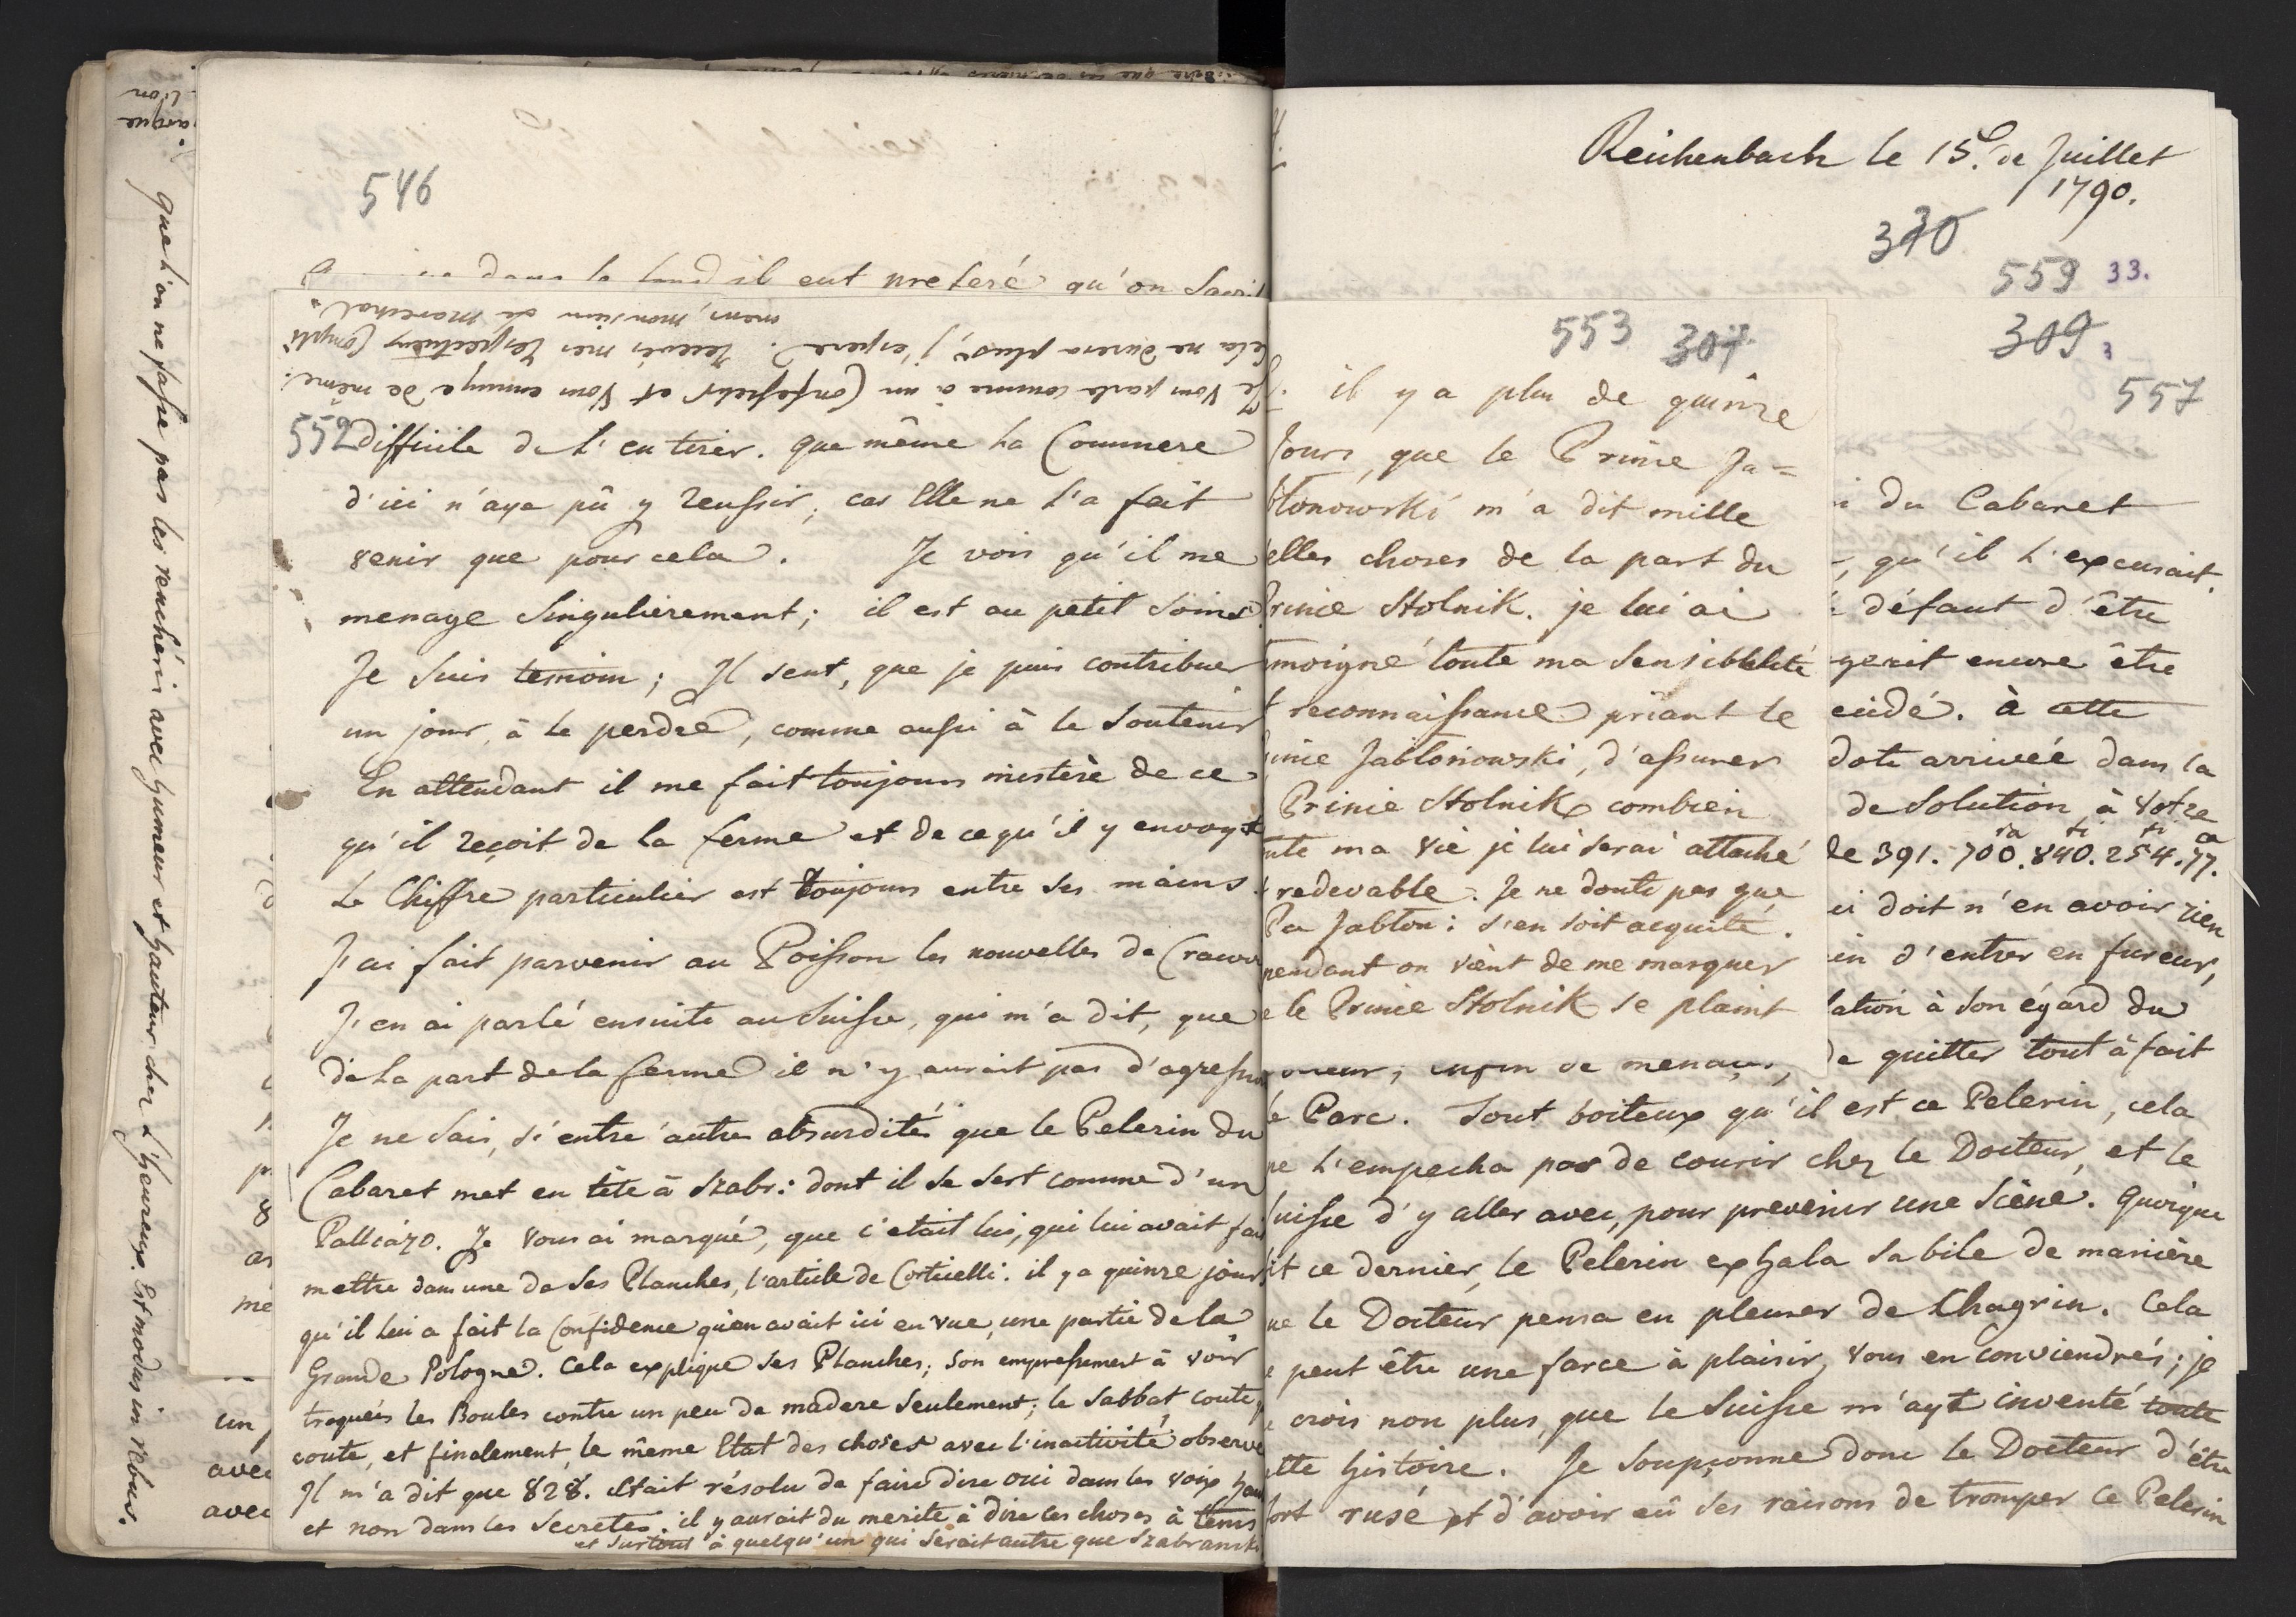 que l'on ne fasse pas les renchéris avec humeur et hauteur chez l'heureux. Est modus in rebus.
546
dans le fond il eut preferé qu'on
Je Vous parle comme à un Confesseur et Vous ennuye de même.
Cela ne durera plus, j'espere. Recevés mes respectueux Compli
mens, monsieur le Marechal.
552
difficile de l'en tirer. que même la Commere
d'ici n'aye pû y reussir, car Elle ne l'a fait
venir que pour cela. Je vois qu'il me
menage singulierement; il est au petit soins
Je suis temoin; Il sent, que je puis contribuer
un jour, à le perdre, comme aussi à le soutenir
En attendant il me fait toujours mistère de ce
qu'il reçoit de la ferme et de ce qu'il y envoye
Le Chiffre particulier est toujours entre ses mains.
J'ai fait parvenir au Poisson les nouvelles de
J'en ai parlé ensuite au Suisse, qui m'a dit, que
de la part de la ferme il n'y aurait pas
Je ne sais, si entre autre absurdités que le Pelerin du
Cabaret met en tête à Szabr: dont il se sert comme d'un
Palliazo. Je Vous ai marqué, que c'était lui, qui lui avait
mettre dans une de ses Planches, l'article de Corticelli. il y a quinze jours
qu'il lui a fait la Confidence qu'on avait ici en vue, une partie de la
Grande Pologne. Cela explique ses Planches; son empressement à voir
troquées les Boules contre un peu de madere seulement; le Sabbat coute
coute, et finalement, le même Etat des choses avec l'inactivité
Il m'a dit que 828. était résolu de faire dire oui dans les voix
et non dans les Secretes. il y aurait du merite à dire les choses à tems
et surtout à quelqu'un qui serait autre que
un
avec
avec
Reichenbach le 15. de Juillet
1790.
370
559 33.
309
557
553 307
il y a plus de quinze
jours, que le Prince Ja=
blonowski m'a dit mille
belles choses de la part du
Prince Stolnik. je lui ai
toute ma sensibilité
reconnaissance priant le
Jablonowski, d'assurer
Prince Stolnik combien
ma vie je lui serai attaché
redevable. Je ne doute pas que
Jablon: s'en soit acquité.
on vient de me marquer
le Prince Stolnik se plaint
du Cabaret
, qu'il l'excusait
défaut d'être
encore être
à cette
arrivée dans la
de Solution à Votre
de 391. 700. 840. 254. 77.
doit n'en avoir rien
d'entrer en fureur,
à son égard du
de quitter tout à fait
enfin de menaces,
le Parc. Tout boiteux qu'il est ce Pelerin, cela
ne l'empecha pas de courir chez le Docteur, et le
Suisse d'y aller avec, pour prevenir une Scène. Quoique
fit ce dernier, le Pelerin exhala sa bile de manière
que le Docteur pensa en pleurer de Chagrin. Cela
peut être une farce à plaisir, Vous en conviendrés; je
crois non plus, que le Suisse m'aye inventé toute
cette histoire. Je soupçonne donc le Docteur d'être
fort rusé et d'avoir eû ses raisons de tromper le Pelerin